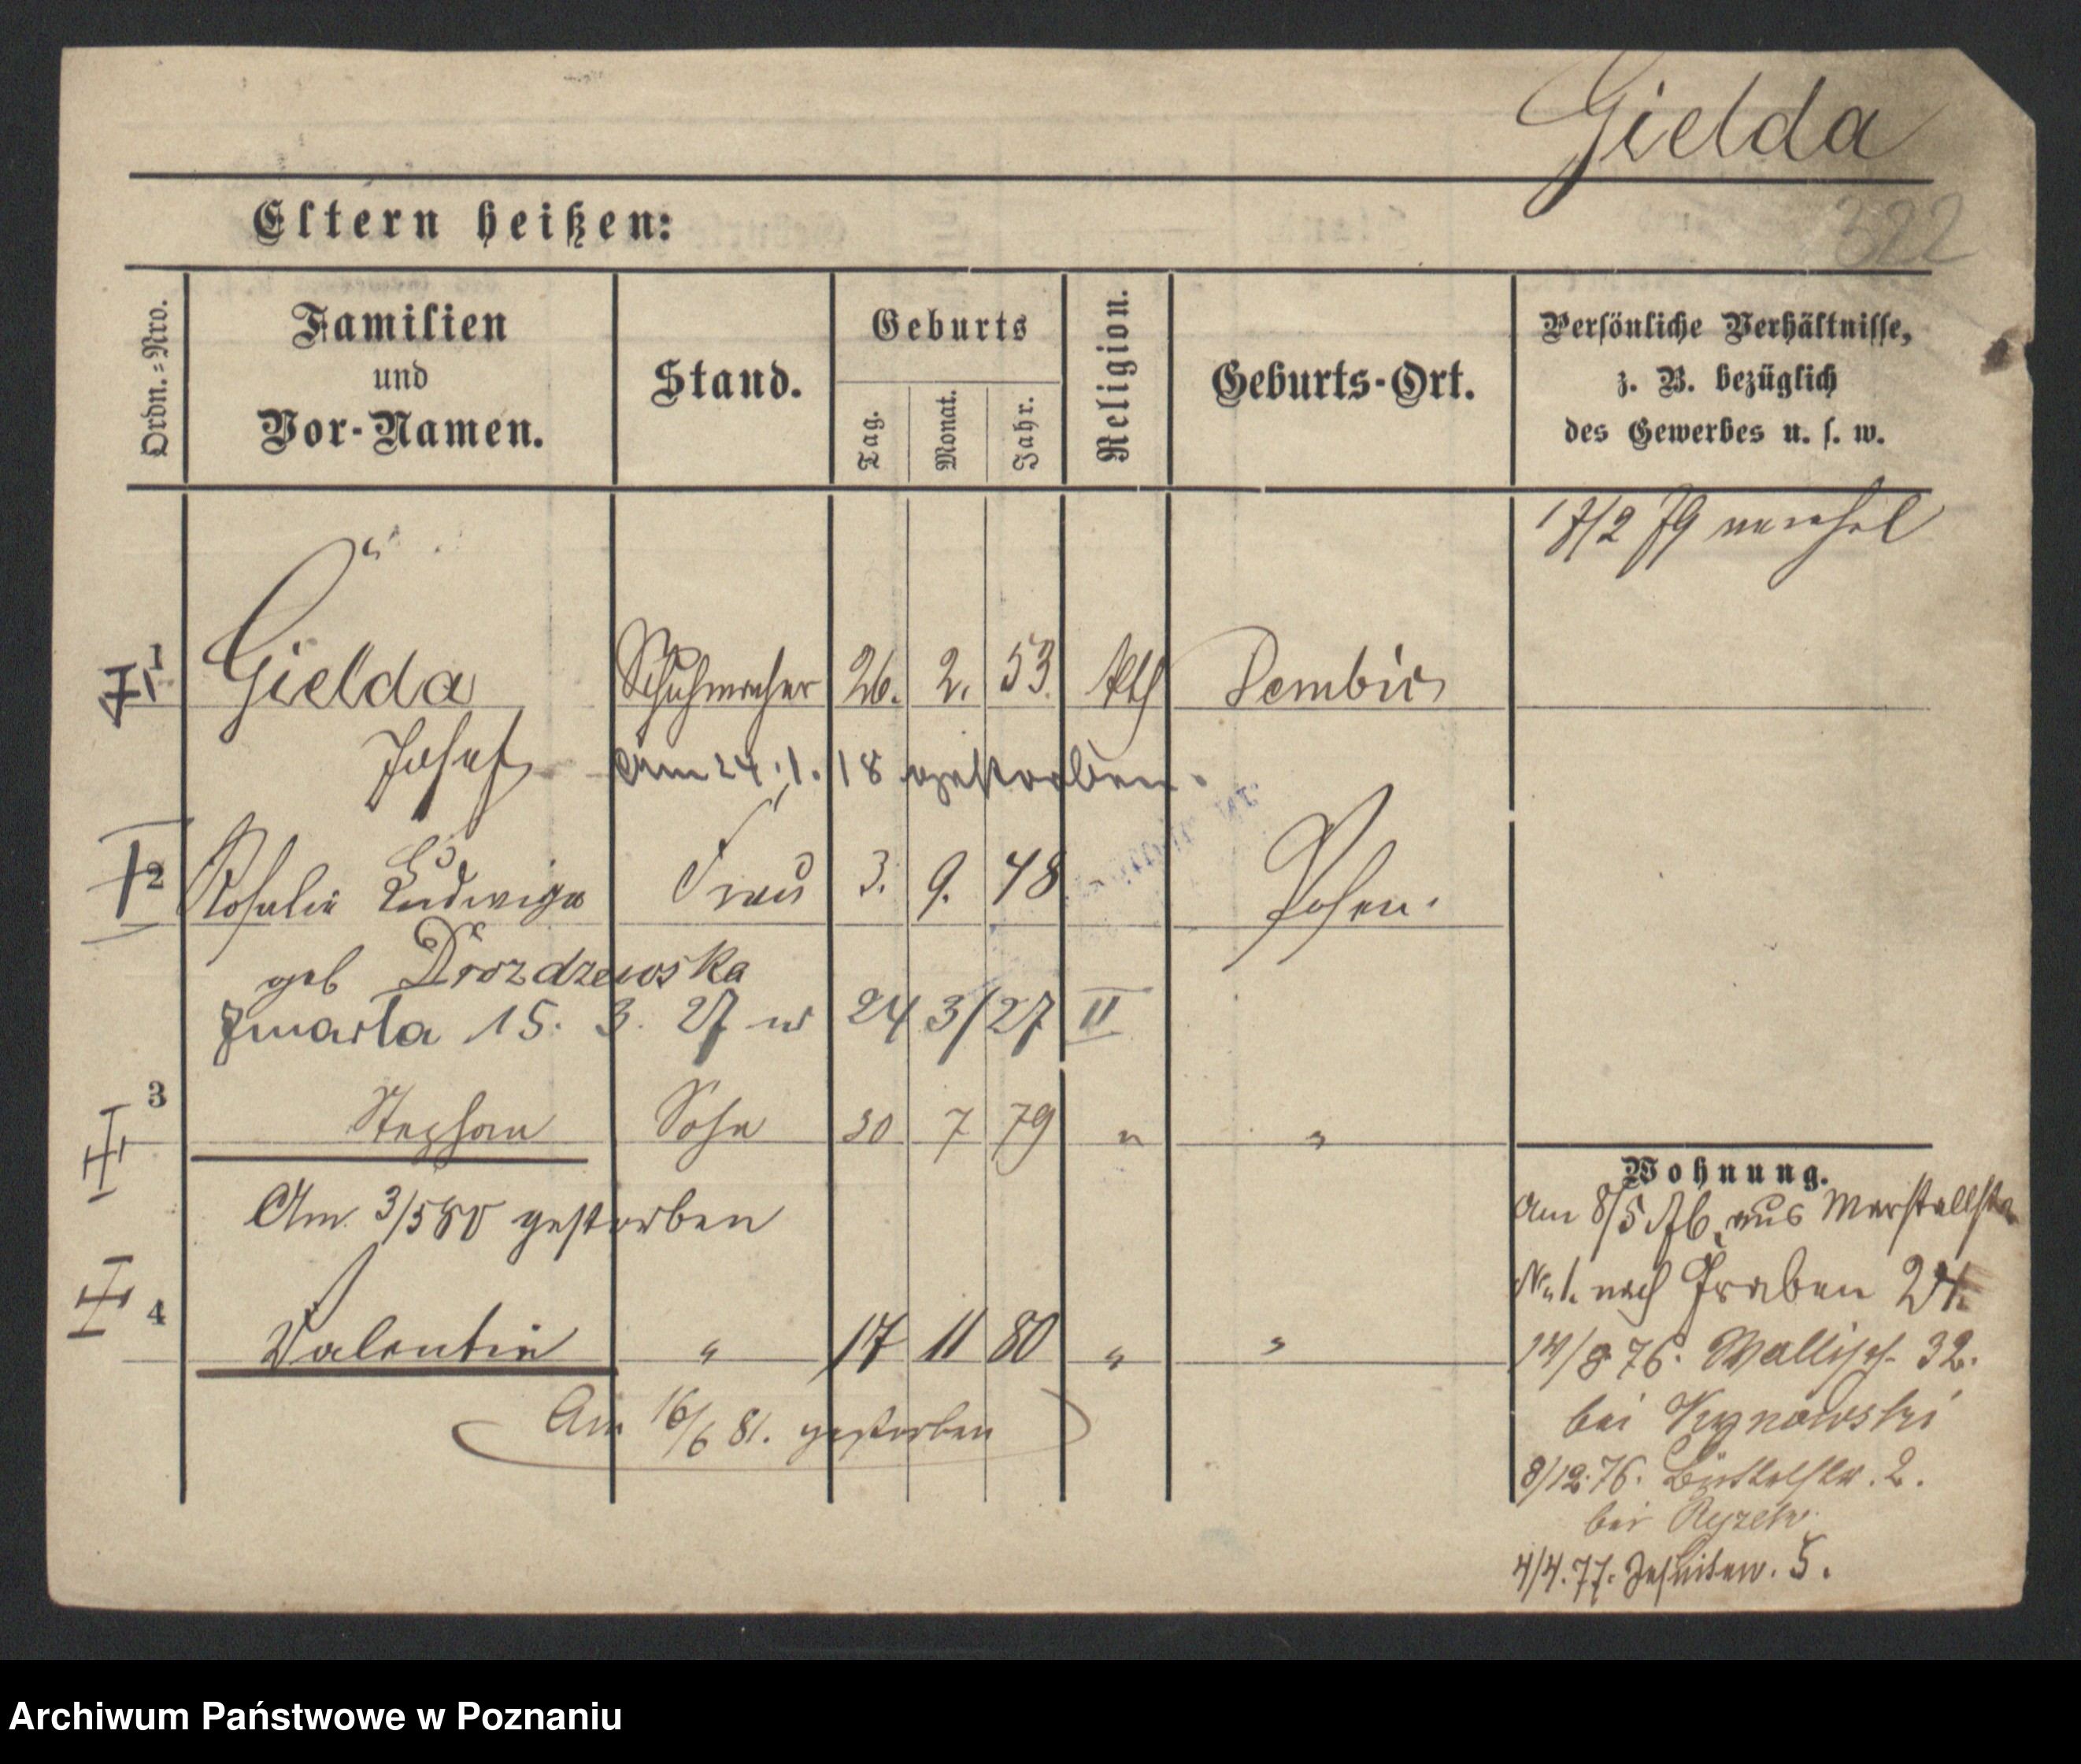 Gielda
322
Eltern heißen:
Ordn.=Nro.
Familien
und
Vor-Namen.
Stand.
Geburts
Tag.
Monat.
Jahr.
Religion.
Geburts-Ort.
Persönliche Verhältnisse,
z. B. bezüglich
des Gewerbes u. s. w.
17/2 79
1 Gielda Schuhmacher 26. 2. 53. kth
Josef
Am 24.1.18 gestorben.
2 Rosalie Ludwiga Frau 3. 9. 48 Posen.
geb Drozdzewska
Zmarła 15. 3. 27 w 24 3/27 II
3 Stephan Sohn 30 7 79 " "
Am 3/5 80 gestorben
4 Valentin " 17 11 80 " "
Am 16/6 81. gestorben
Wohnung.
Am 8/5 76 aus Marstallstr
No 1. nach Graben 24.
14/8 76. Wallisch. 32.
bei
8/12.76. Büttelstr. 2.
bei
4/4.77. Jesuitenstr. 5.
Archiwum Państwowe w Poznaniu